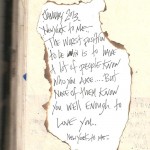 January 2013
New York to me -
The worst position
to be in is to have
a lot of people know
who you are.... But
None of them know
you well enough to
Love you...
New York to me..